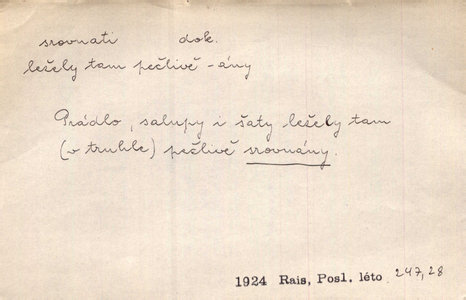 srovnati dok.
ležely tam pečlivě -ány
Prádlo, salupy i šaty ležely tam
(v truhle) pečlivě srovnány.
1924 Rais, Posl. léto 247,28